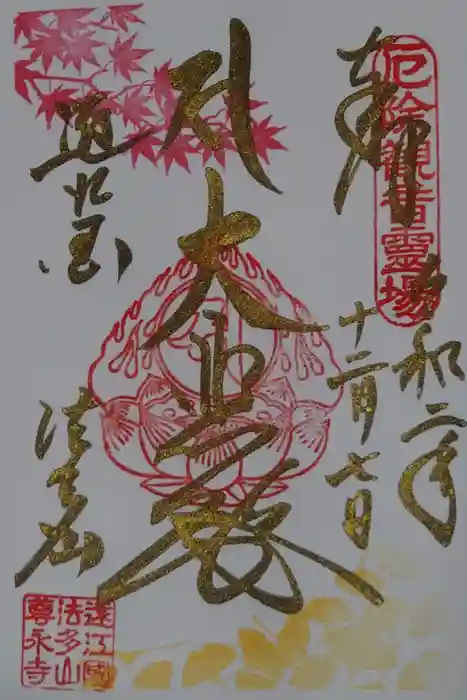 厄除觀音靈場
奉拝
令和二年
十二月七日
大悲殿
法多山
遠江國
法多山
尊永寺